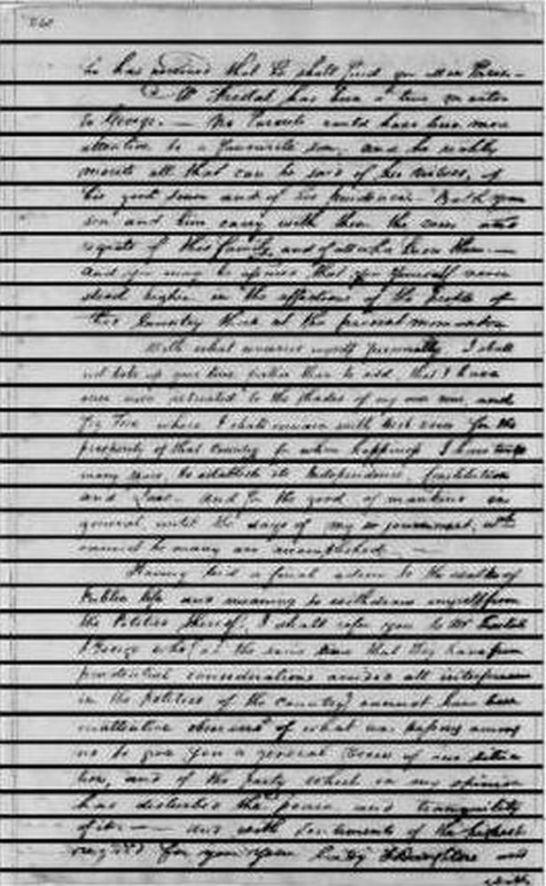 he has received that he shall find you
Mr Frestal has been a true
to George. — No Parents could have been more
attentive to a favourite son, and he richly
merits all that can be said of his virtues, of
his good sense and of his prudence. Both your
son and him carry with them the vows and
regrets of this family, and of all who know them. —
And you may be assured that you yourself never
stood higher in the affections of the People of
this Country than at the present moment
With what concerns myself personally, I shall
not take up your time further than to add, that I have
once more retreated to the shades of my own vine, and
Fig Tree where I shall remain with best vows for the
prosperity of that Country for whose happiness I have
many years, to establish its Independence, Constitution
and Laws. And for the good of mankind in
general, until the days of my sojournment,
cannot be many are accomplished. —
Having bid a final adieu to the walks of
Public life and meaning to withdraw myself from
the Politics thereof, I shall refer you to Mr Frestal
& George who (at the same time that they have from
prudential considerations avoided all interference
in the Politics of the country) cannot have been
inattentive observers of what was passing among
us to give you a general view of our situa
tion, and of the party which in my opinion
has disturbed the peace and tranquility
of it. — And with sentiments of the highest
regard for you your Lady & Daughters and